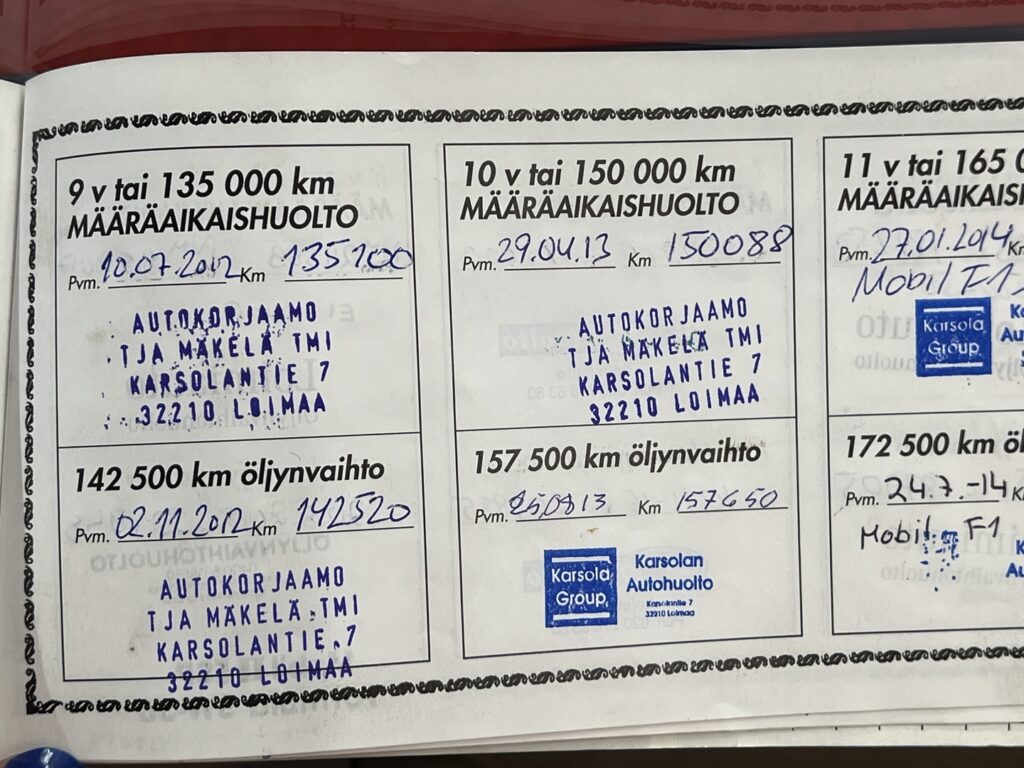 9 v tai 135 000 km
MÄÄRÄAIKAISHUOLTO
Pvm. 10.07.2012 Km 135100
AUTOKORJAAMO
TJA MÄKELÄ TMI
KARSOLANTIE 7
32210 LOIMAA
142 500 km öljynvaihto
Pvm. 02.11.2012 Km 142520
AUTOKORJAAMO
TJA MÄKELÄ TMI
KARSOLANTIE 7
32210 LOIMAA
10 v tai 150 000 km
MÄÄRÄAIKAISHUOLTO
Pvm. 29.04.13 Km 150088
AUTOKORJAAMO
TJA MÄKELÄ TMI
KARSOLANTIE 7
32210 LOIMAA
157 500 km öljynvaihto
Pvm. 25.08.13 Km 157650
Karsola Group
Karsolan
Autohuolto
Karsolantie 7
32210 Loimaa
11 v tai 165 0
MÄÄRÄAIKAISH
Pvm. 27.01.2014 K
Mobil F1
Karsola
Group
172 500 km öl
Pvm. 24.7.-14 K
Mobil F1